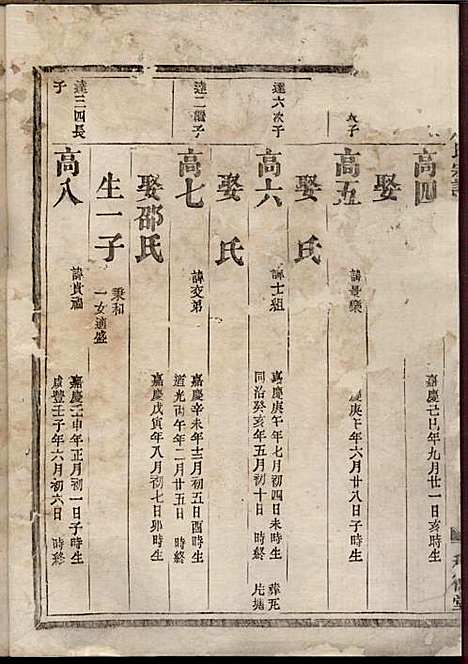 高四
嘉慶己巳年九月廿一日亥時生
娶
次子
高五
諱景樂
慶庚午年六月廿八日子時生
娶 氏
達六次子
高六
諱士組
嘉慶庚午年七月初四日未時生 葬瓦
同治癸亥年五月初十日 時終 片塘
娶 氏
達二繼子
高七
諱交弟
嘉慶辛未年十二月初五日酉時生
道光丙午年二月廿五日 時終
娶邵氏
嘉慶戊寅年八月初七日卯時生
生一子
秉和
一女適盛
達三四長
子
高八
諱貴福
嘉慶壬申年正月初一日子時生
咸豐壬子年六月初六日 時終